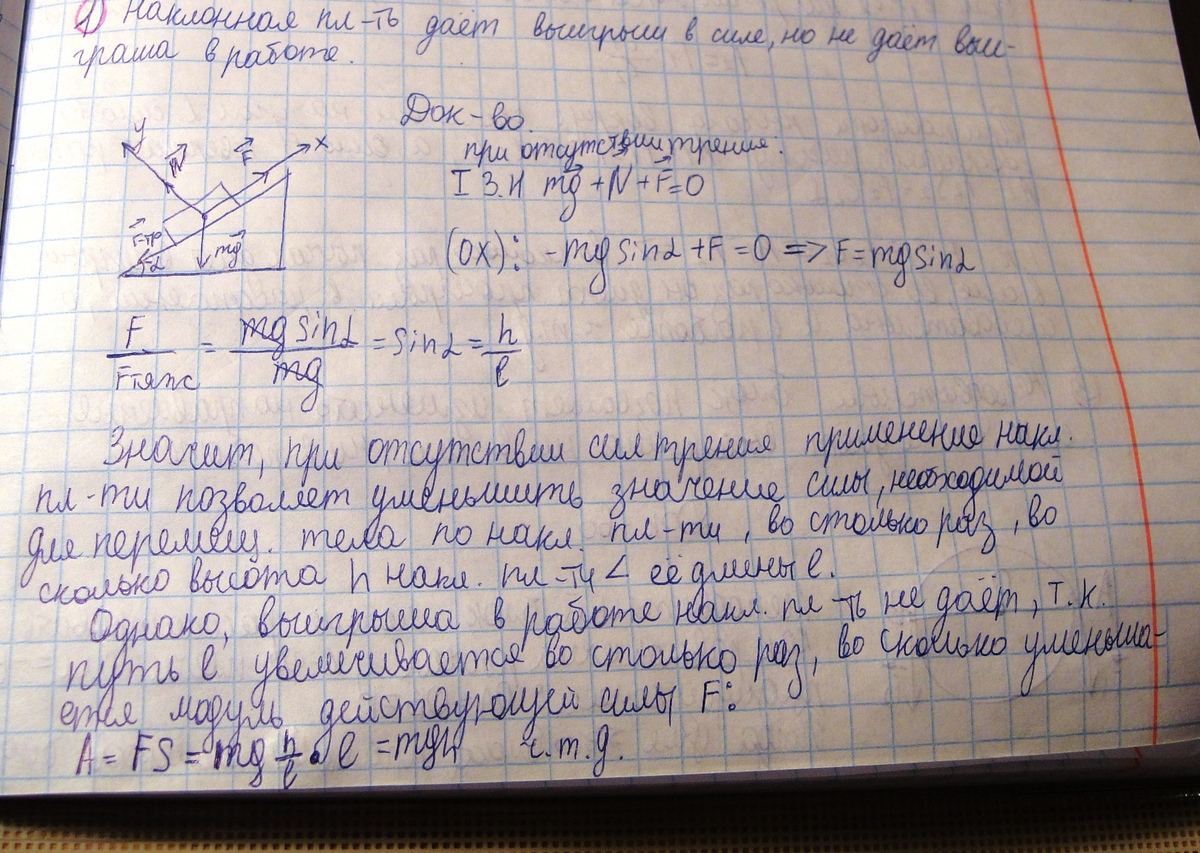 1) Наклонная пл-ть даёт выигрыш в силе, но не даёт выи-
граша в работе.
Док-во.
при отсутствии трения:
I З.Н mg + N + F = 0
y N F x
Fтр α mg
(OX): -mg sinα + F = 0 => F = mg sinα
F/Fтяж = mg sinα/mg = sinα = h/l
Значит, при отсутствии сил трения применение накл.
пл-ти позволяет уменьшить значение силы, необходимой
для перемещ. тела по накл. пл-ти, во столько раз, во
сколько высота h накл. пл-ти < её длины l.
Однако, выигрыша в работе накл. пл-ть не даёт, т.к.
путь l увеличивается во столько раз, во сколько уменьша-
ется модуль действующей силы F:
A = FS = mg h/l • l = mgh ч.т.д.